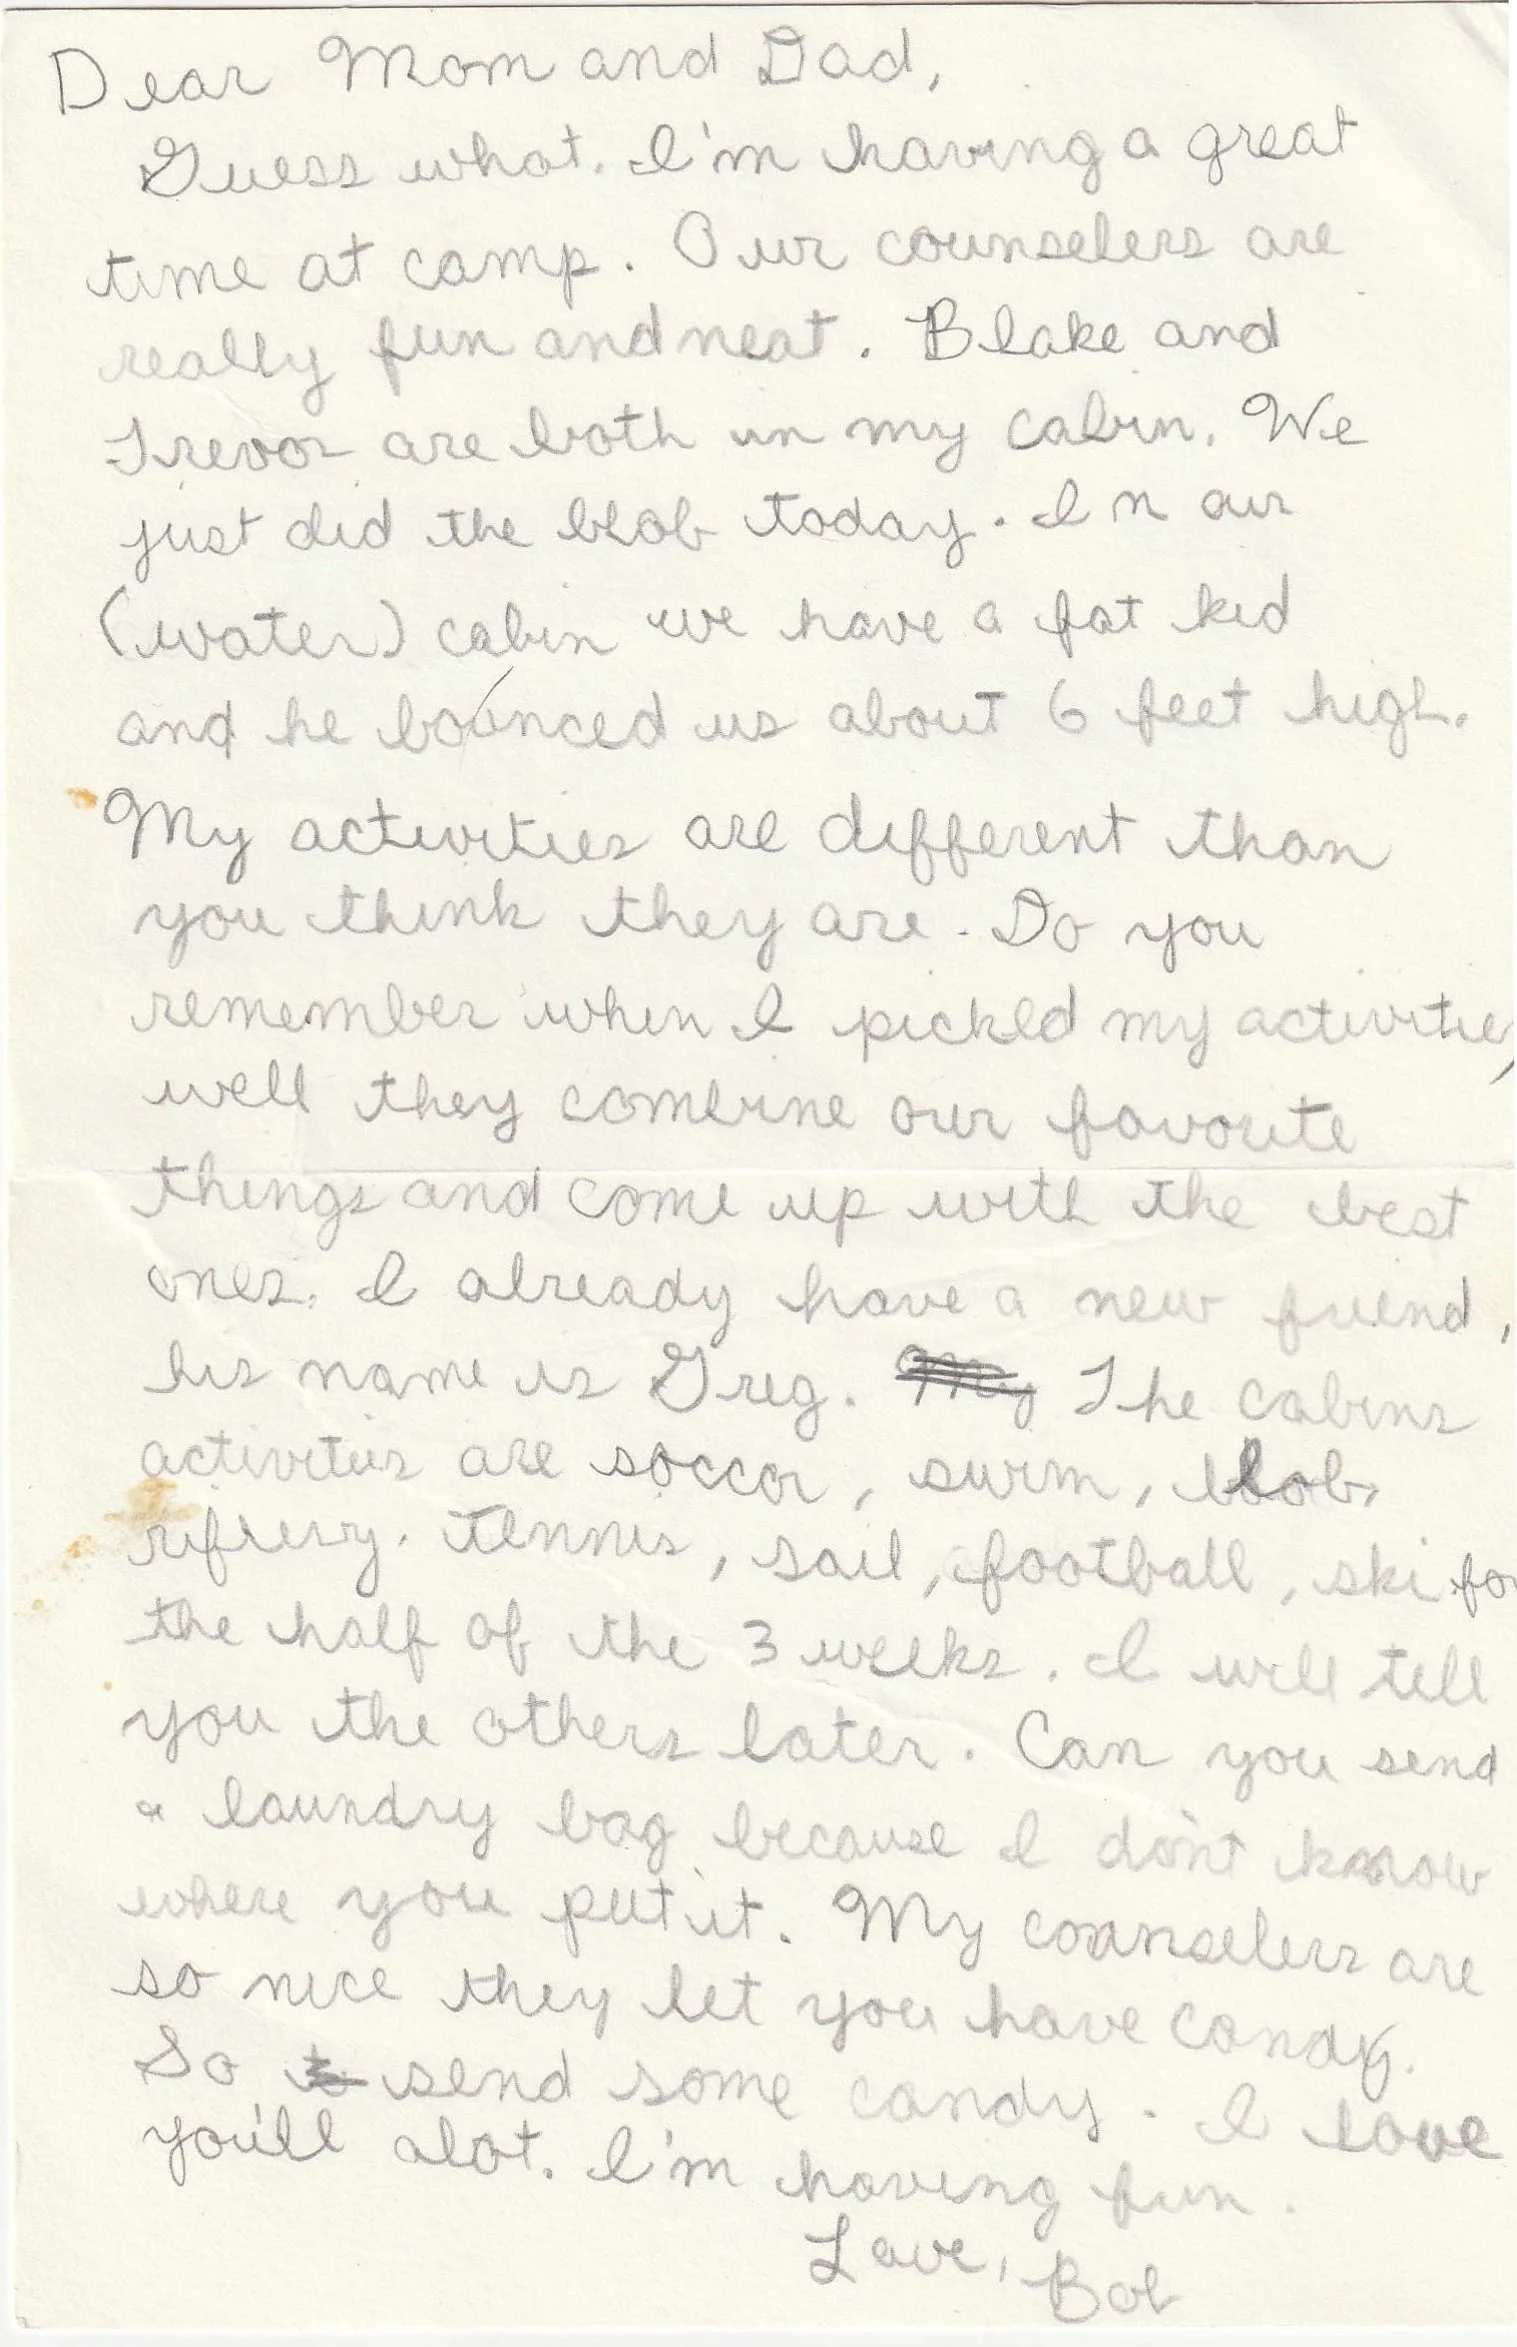 Dear Mom and Dad,
Guess what. I'm having a great
time at camp. Our counselers are
really fun and neat. Blake and
Trevor are both in my cabin. We
just did the blob today. In our
(water) cabin we have a fat kid
and he bounced us about 6 feet high.
My activities are different than
you think they are. Do you
remember when I picked my activities,
well they combine our favorite
things and come up with the best
ones. I already have a new friend,
his name is Greg. My The cabins
activities are soccor, swim, blob,
rifelry. tennis, sail, football, ski for
the half of the 3 weeks. I will tell
you the others later. Can you send
a laundry bag because I don't know
where you put it. My counselers are
so nice they let you have candy.
So send some candy. I love
you'll alot. I'm having fun.
Love, Bob